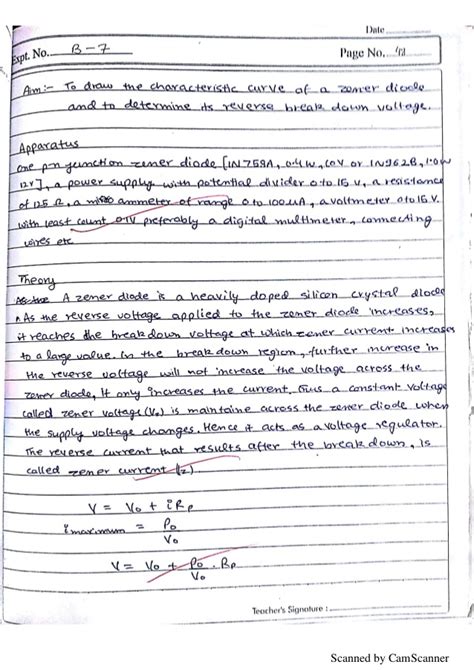 Date
Expt. No. B-7
Page No. 41
Aim:- To draw the characteristic curve of a zener diode
and to determine its reverse break down voltage.
Apparatus
One p-n junction zener diode [1N758A, 0.4W, 10V or 1N962B, 1.0W
12V], a power supply with potential divider 0 to 15 V, a resistance
of 125 Ω, a micro ammeter of range 0 to 100μA, a voltmeter 0 to 15 V.
with least count 0.1V preferably a digital multimeter, connecting
wires etc
Theory
A zener diode is a heavily doped silicon crystal diode
As the reverse voltage applied to the zener diode increases,
it reaches the breakdown voltage at which zener current increases
to a large value. In the breakdown region, further increase in
the reverse voltage will not increase the voltage across the
zener diode, It only increases the current. Thus a constant voltage
called zener voltage (V₀) is maintaine across the zener diode when
the supply voltage changes. Hence it acts as a voltage regulator.
The reverse current that results after the breakdown, is
called zener current (Iz).
V = V₀ + iRp
i maximum = P₀/V₀
V = V₀ + P₀/V₀ . Rp
Teacher's Signature :
Scanned by CamScanner